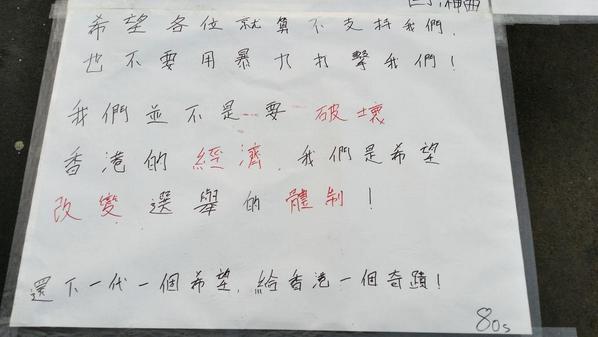 神曲
希望各位就算不支持我們,
也不要用暴力打擊我們!
我們並不是要破壞
香港的經濟,我們是希望
改變選舉的體制!
還下一代一個希望,給香港一個奇蹟!
80s